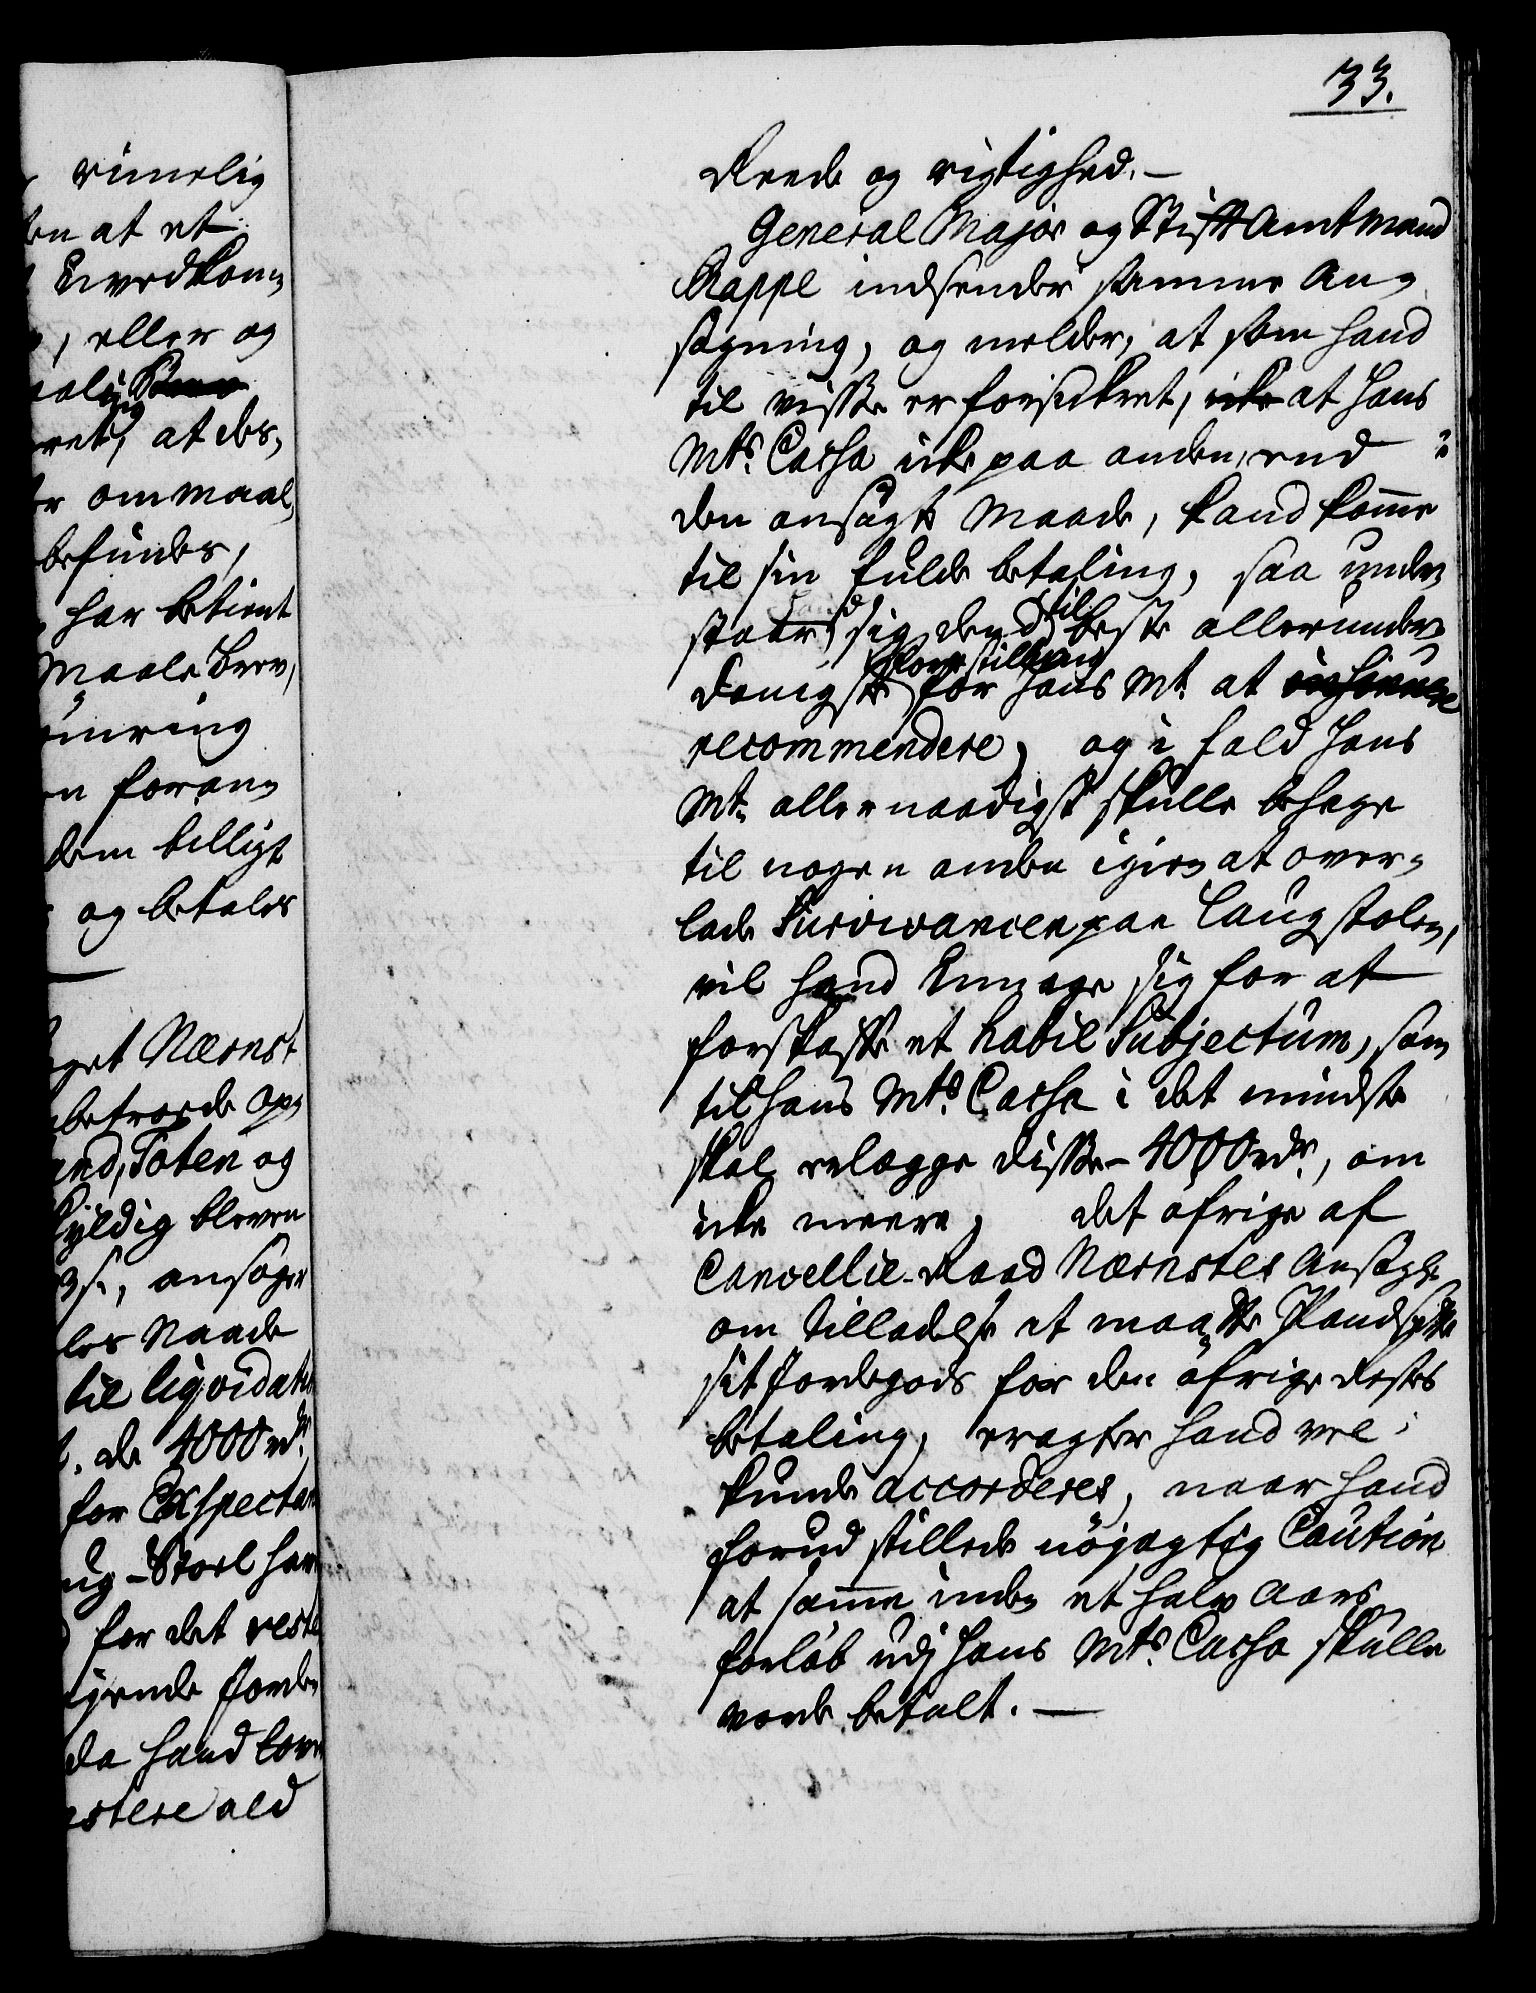 rimelig
en at et
Uvedkom,
, eller og
at des,
ommaal,
befindes,
har betient
Maale Brev,
foran,
dem billigt
og betales
get Nærnst
betroede Op,
and, Toten og
skyldig bleven
3 s., ansøger
les Naade
til liqvidati
de 4000 rdr.
for Exspectan
ug-Stoel har
for det reste
ijende Jorde,
da hand love
ald
33.
Rede og rigtighed. —
General Major og Stift Amtmand
Rappe indsender samme An,
søgning, og melder, at som hand
til visse er forsickret, icke at Hans
Mts. Cassa icke paa anden, end
den ansøgte Maade, kand komme
til sin fulde betaling, saa under,
staaer hand sig dend til beste allerunder,
danigste forestilling for Hans Mt. at
recommendere, og i fald Hans
Mt. allernaadigst skulle behage
til nogen anden igien at over,
lade Survivancen paa Laugstolen,
vil hand Engagere sig for at
forskaffe et habil Subjectum, som
til Hans Mts. Cassa i det mindste
skal erlægge disse 4000 rdr., om
icke meere, det øfrige af
Cancellie-Raad Nærnstes Ansøgn.
om Tilladelse at maatte Pandsætte
sit Jordegods for den øfrige Restes
betaling, eragter hand vel
kunde accorderes, naar hand
forud stillede nöjagtig Caution
at samme inden et halv Aars
forløb udj Hans Mts. Cassa skulle
vorde betalt. —